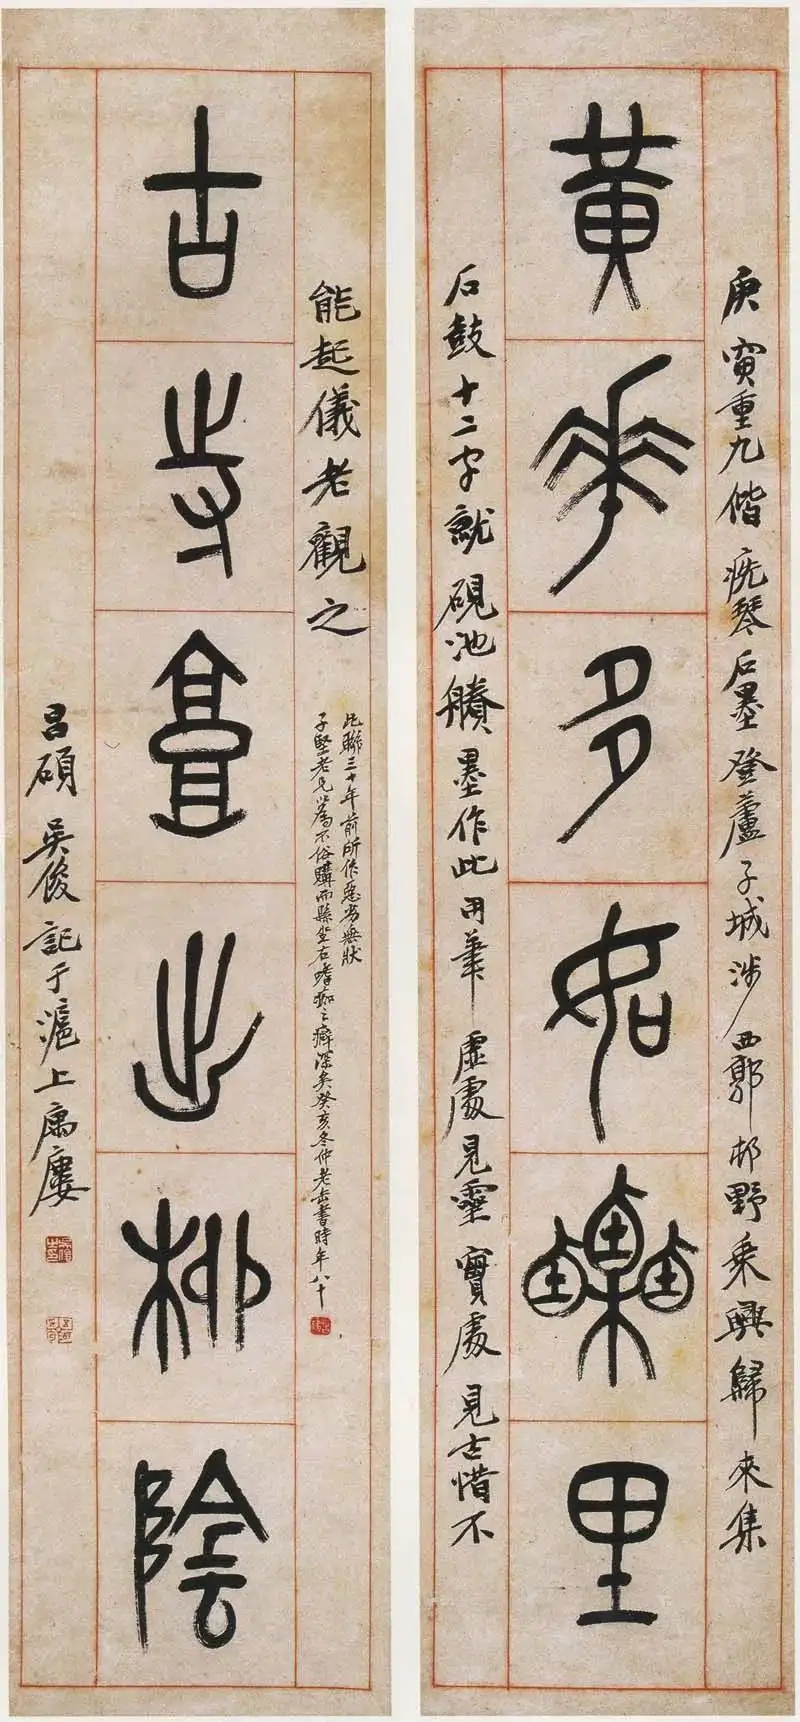 庚寅重九偕疣琴石墨登蘆子城涉西郭邨野乘興歸來集
黃華多如栗里
石鼓十二字就硯池賸墨作此用筆虛處見靈實處見古惜不
能起儀老觀之
此聯三十年前所作惡劣無狀
子堅老兄以為不俗購而縣坐右嗜痂之癖深矣癸亥冬仲老缶書時年八十
古寺郭出柳陰
昌碩吳俊記于滬上寓廔